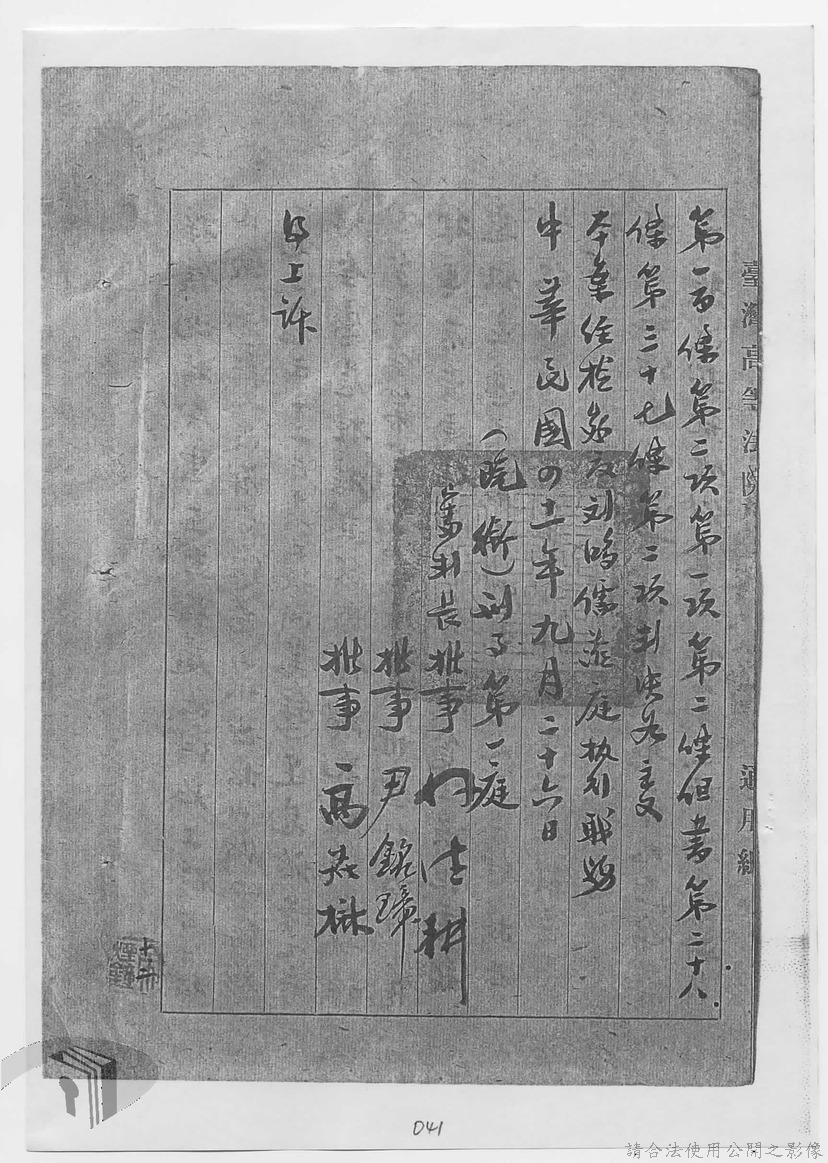 臺灣高等法院
通用紙
第一百條第二項第一項第二條但書第二十八
條第三十七條第二項判決如主文
本案經檢察官刘鸣儒蒞庭执行职务
中華民國四十一年九月二十六日
(院銜)刑事第一庭
審判長推事 清耕
推事 尹銘璋
推事 高
上訴
041
請合法使用公開之影像